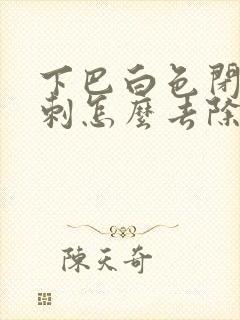 下巴白色閉
刺怎麼去除
陳天奇